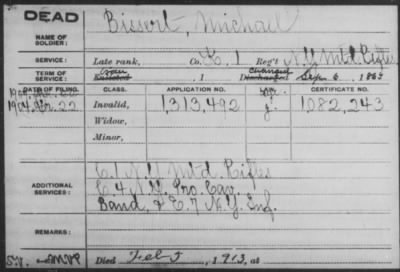 DEAD
NAME OF SOLDIER: Bissert, Michael
SERVICE: Late rank, Co. C, 1 Reg't N.Y. Mtd. Rifles
TERM OF SERVICE: Enlisted , 1 Discharged Changed Sep. 6, 1865
DATE OF FILING. CLASS. APPLICATION NO. CERTIFICATE NO.
1904, Apr. 22 Invalid, 1,313,492 1,082,243
Widow,
Minor,
ADDITIONAL SERVICES:
C. 1 N.Y. Mt'd Rifles
C. 4 N.Y. Pro. Cav.
Band, & C. 7 N.Y. Inf.
REMARKS:
Died Feb , 1913, at